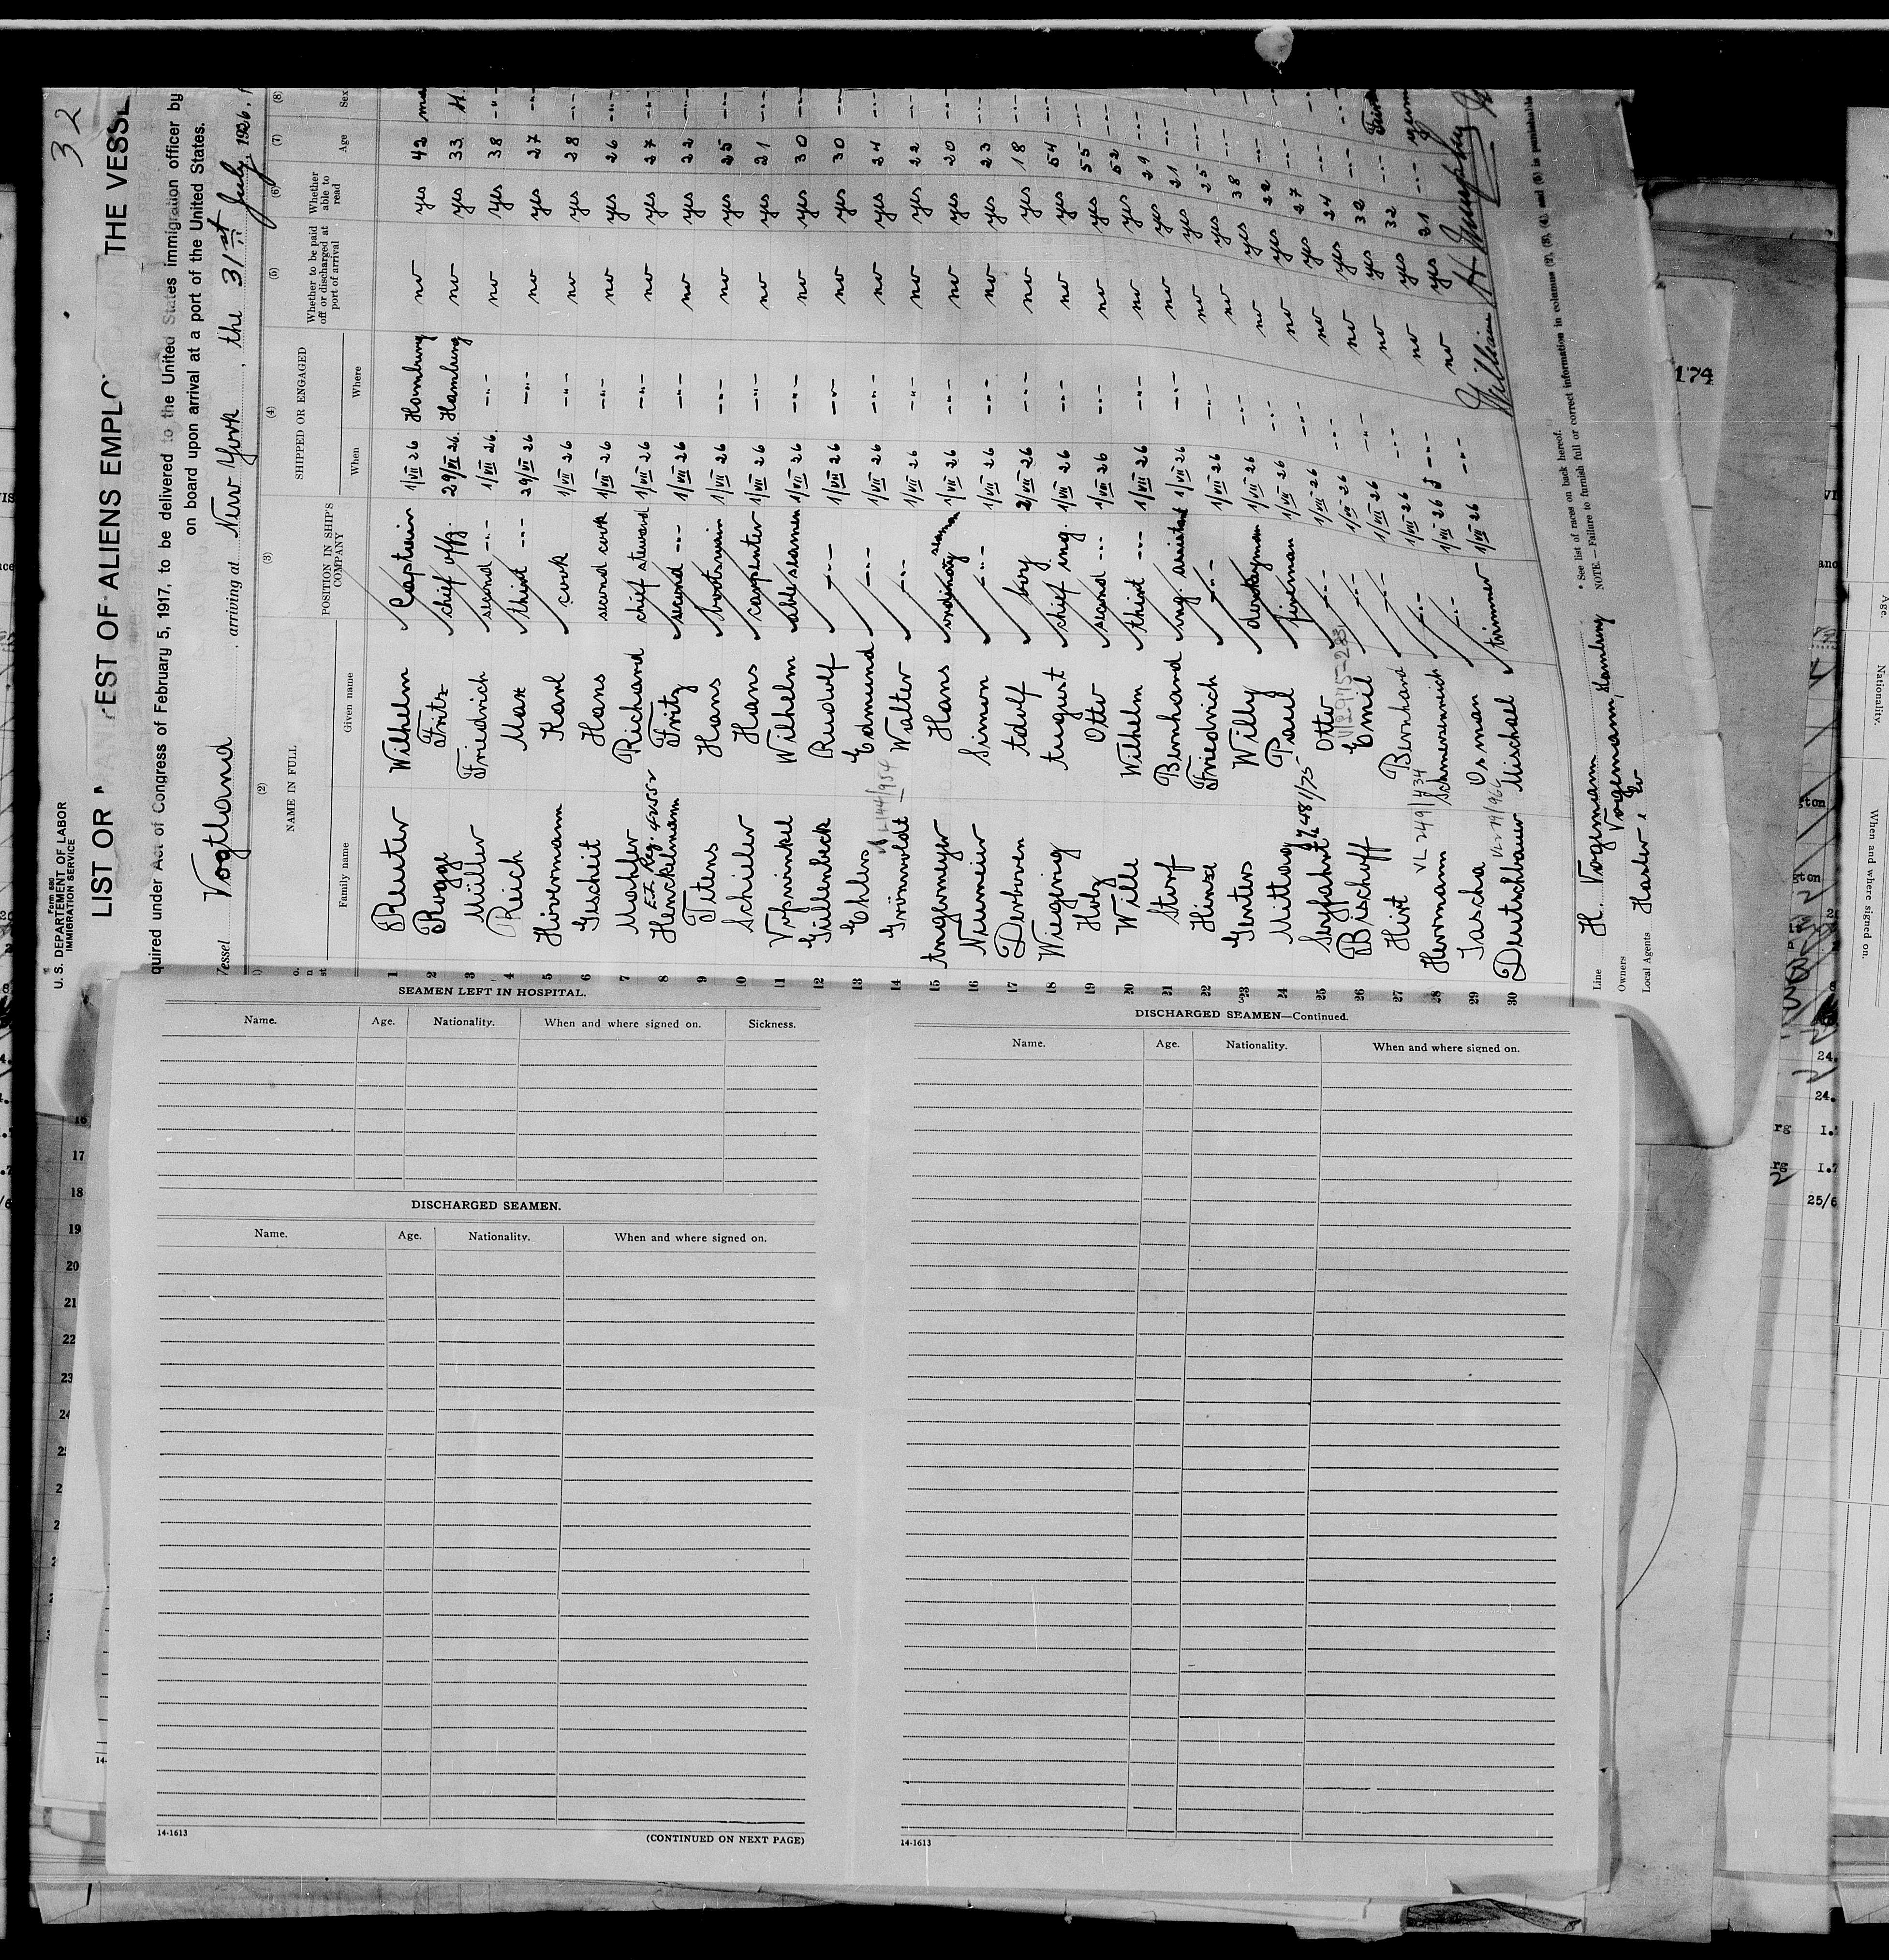 32
Form 680
U. S. DEPARTMENT OF LABOR
IMMIGRATION SERVICE
LIST OR
EST OF ALIENS EMPLO
THE VESS
quired under Act of Congress of February 5, 1917, to be delivered to the United States immigration officer by
on board upon arrival at a port of the United States.
Vessel Vogtland, arriving at New York, the 31st July, 1926, 
(2) (3) (4) (5) (6) (7) (8)
NAME IN FULL POSITION IN SHIP'S COMPANY SHIPPED OR ENGAGED Whether to be paid off or discharged at port of arrival Whether able to read Age Sex
Family name Given name When Where
1 Reuter Wilhelm Captain 1/VII 26 Hamburg no yes 42
2 Rogge Fritz chief offz. 29/VI 26. Hamburg no yes 33 M.
3 Müller Friedrich second -"- 1/VII 26. -"- no yes 38 -"-
4 Reich Max third -"- 29/VI 26 -"- no yes 27 -"-
5 Hövermann Karl cook 1/VII 26 -"- no yes 28 -"-
6 Gescheit Hans second cook 1/VII 26 -"- no yes 26 -"-
7 Mahler Richard chief steward 1/VII 26 -"- no yes 27 -"-
8 Henckelmann Fritz second -"- 1/VII 26 -"- no yes 22 -"-
9 Titens Hans bootsmain 1/VII 26 -"- no yes 25 -"-
10 Schieler Hans carpenter 1/VII 26 -"- no yes 21 -"-
11 Vohwinkel Wilhelm able seamen 1/VII 26 -"- no yes 30 -"-
12 Güllenbeck Rudolf -"- 1/VII 26 -"- no yes 30 -"-
13 Ehlers Edmund -"- 1/VII 26 -"- no yes 24 -"-
14 Grönwoldt Walter -"- 1/VII 26 -"- no yes 22 -"-
15 Angermeyer Hans ordinary seaman 1/VII 26 -"- no yes 20 -"-
16 Neumeier Simon -"- 1/VII 26 -"- no yes 23 -"-
17 Derboven Adolf boy 2/VII 26 -"- no yes 18 -"-
18 Wiegering August chief ing. 1/VII 26 -"- no yes 54 -"-
19 Holz Otto second -"- 1/VII 26 -"- no yes 55 -"-
20 Wille Wilhelm third -"- 1/VII 26 -"- no yes 52 -"-
21 Storf Bernhard ing. assistant 1/VII 26 -"- no yes 29 -"-
22 Hinze Friedrich -"- 1/VII 26 -"- no yes 21 -"-
23 Genters Willy donkeyman 1/VII 26 -"- no yes 25 -"-
24 Mittag Paul fireman 1/VII 26 -"- no yes 38 -"-
25 Otto -"- 1/VII 26 -"- no yes 22 -"-
26 Bischoff Emil -"- 1/VII 26 -"- no yes 27 -"-
27 Hirt Bernhard -"- 1/VII 26 -"- no yes 24 -"-
28 Hermann -"- 1/VII 26 -"- no yes 32 -"-
29 Jascha Osman -"- 1/VII 26 -"- no yes 32 -"-
30 Deutschbauer Mischael trimmer 1/VII 26 -"- no yes 21 -"-
VL 249/434
William H Humphy
* See list of races on back hereof.
NOTE.—Failure to furnish full or correct information in columns (2), (3), (4) and (5) is punishable
Line H. Vogemann
Owners Vogemann, Hamburg
Local Agents Hasler & Co
SEAMEN LEFT IN HOSPITAL.
Name. Age. Nationality. When and where signed on. Sickness.
DISCHARGED SEAMEN.
Name. Age. Nationality. When and where signed on.
14-1613
(CONTINUED ON NEXT PAGE)
DISCHARGED SEAMEN—Continued.
Name. Age. Nationality. When and where signed on.
14-1613
174
16
17
18
19
20
21
22
23
24
Age.
Nationality.
When and where signed on.
24.
24.
25/6